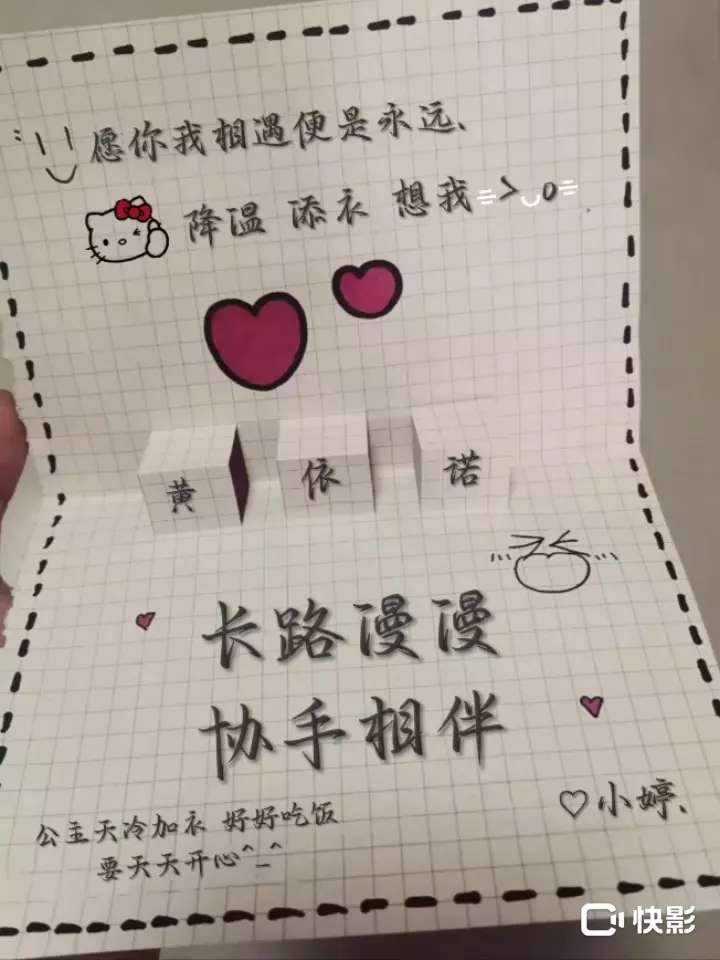 愿你我相遇便是永远、
降温 添衣 想我=>◡o=
黄 依 诺
长路漫漫
协手相伴
♡小婷、
公主天冷加衣 好好吃饭
要天天开心^_^
快影